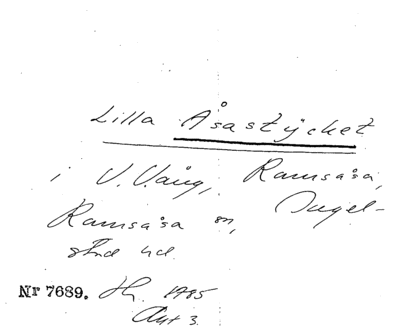 Lilla Åsastycket
i V. Vång, Ramsåsa,
Ramsåsa sn, Ingel-
stad hd.
Nr 7689. Hh. 1785
Akt 3.